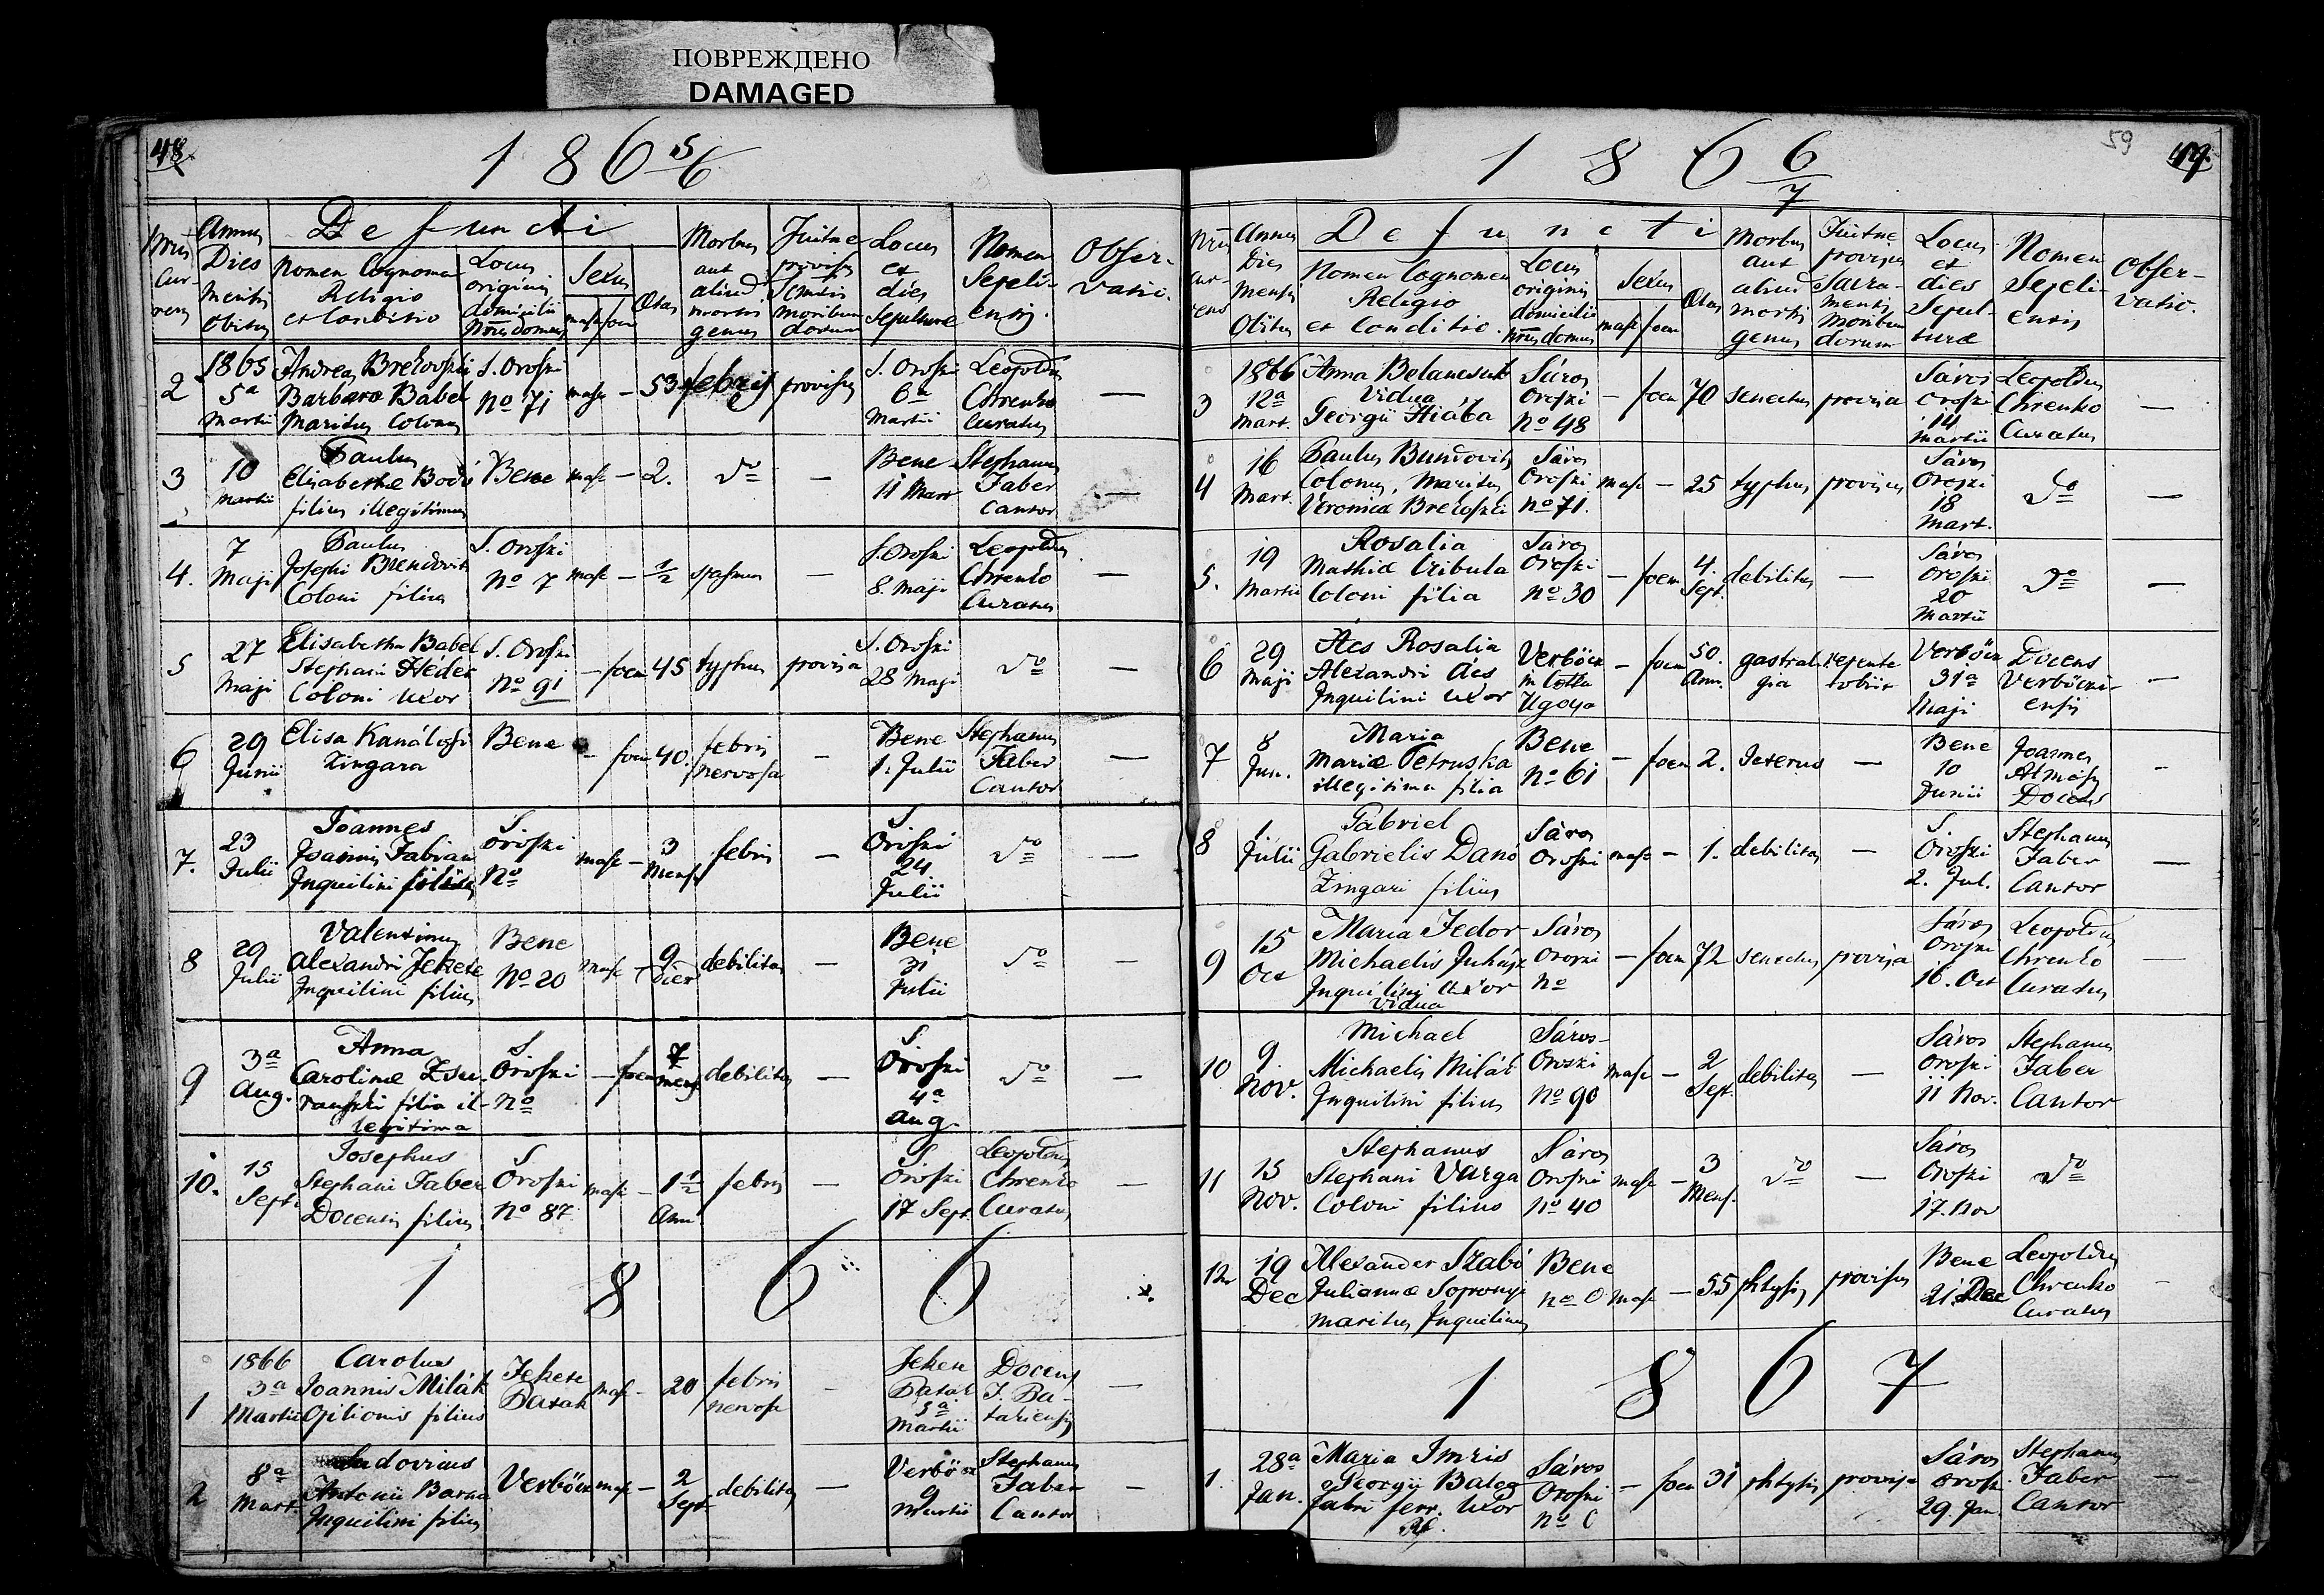 ПОВРЕЖДЕНО
DAMAGED
48
1 8 6 5/6
Defuncti
Nrus currens
Annus Dies Mensis Obitus
Nomen Cognomen Religio et Conditio
Locus originis domicilii Nrus domus
Sexus
masc foem
Ætas
Morbus aut aliud mortis genus
Fuitne provisus Sctis moribundorum
Locus et dies Sepulturæ
Nomen Sepelientis
Observatio.
2 1865 5a Martii Andreas Brekovszki Barbaræ Babel Maritus Colonus S. Oroszi No 71 masc — 53 febris provisus S. Oroszi 6a Martii Leopoldus Chrenko Curatus —
3 10 Martii Paulus Elisabethæ Bodó filius illegitimus Bene masc — 2. do — Bene 11 Mart Stephanus Faber Cantor —
4. 7 Maji Paulus Josephi Coloni filius S. Oroszi No 7 masc — 1/2 spasmus — S. Oroszi 8. Maji Leopoldus Chrenko Curatus —
5 27 Maji Elisabetha Babel Stephani Héder Coloni uxor S. Oroszi No 91 — foem 45 typhus provisa S. Oroszi 28 Maji do —
6 29 Junii Elisa Kanálosi Zingara Bene — foem 40. febris nervosa — Bene 1. Julii Stephanus Faber Cantor —
7. 23 Julii Joannes Joannis Fabian Inquilini filius S. Oroszi No masc — 3 Mens. febris — S. Oroszi 24 Julii do —
8 29 Julii Valentinus Alexandri Fekete Inquilini filius Bene No 20 masc — 9 Dier debilitas — Bene 31 Julii do —
9 3a Aug. Anna Carolinæ Zsuranszki filia illegitima S. Oroszi No — foem 7 mens debilitas — S. Oroszi 4a Aug. do —
10. 15 Sept. Josephus Stephani Faber Docentis filius S. Oroszi No 87 masc — 1 1/2 Ann. febris — S. Oroszi 17 Sept. Leopoldus Chrenko Curatus —
1 8 6 6
1 1866 3a Martii Carolus Joannis Milák Opilionis filius Fekete Patak masc — 20 febris nervosa — Fekete Patak 5a Martii Docens F. Patakiensis —
2 8a Mart. Ludovicus Antonii Inquilini filius Verbőcz masc — 2 Sept. debilitas — Verbőcz 9 Martii Stephanus Faber Cantor —
59
49.
1 8 6 6/7
Defuncti
Nrus currens
Annus Dies Mensis Obitus
Nomen Cognomen Religio et Conditio.
Locus originis domicilii Nrus domus
Sexus
masc foem
Ætas
Morbus aut aliud mortis genus
Fuitne provisus Sacramentis Moribundorum
Locus et dies Sepulturæ
Nomen Sepelientis
Observatio.
3 1866 12a Mart. Anna Vidua Georgii Hiába Sáros Oroszi No 48 — foem 70 senectus provisa Sáros Oroszi 14 Martii Leopoldus Chrenko Curatus —
4 16 Mart. Paulus Bundovits Colonus, Maritus Veronicæ Brekoszki Sáros Oroszi No 71. masc — 25 typhus provisus Sáros Oroszi 18 Mart. do —
5. 19 Martii Rosalia Mathiæ Czibula Coloni filia Sáros Oroszi No 30 — foem 4. Sept. debilitas — Sáros Oroszi 20 Martii do —
6 29 Maji Ács Rosalia Alexandri Ács Inquilini uxor Verbőcz in Cottu Ugocsa — foem 50. Ann. gastralgia repente obiit Verbőcz 31a Maji Docens Verbőcziensis —
7 8 Jun. Maria Mariæ Petruska illegitima filia Bene No 61 — foem 2. Icterus — Bene 10 Junii Joannes Almásy Docens —
8 1. Julii Gabriel Gabrielis Danó Zingari filius Sáros Oroszi masc — 1. debilitas — S. Oroszi 2. Jul. Stephanus Faber Cantor —
9 15 Oct Maria Fedor Michaelis Juhász Inquilini uxor Vidua Sáros Oroszi No — foem 72 senectus provisa Sáros Oroszi 16. Oct Leopoldus Chrenko Curatus —
10 9 Nov. Michael Michaelis Milák Inquilini filius Sáros-Oroszi No 90 masc — 2 Sept. debilitas — Sáros Oroszi 11 Nov. Stephanus Faber Cantor —
11 15 Nov. Stephanus Stephani Varga Coloni filius Sáros Oroszi No 40 masc — 3 Mens. do — Sáros Oroszi 17. Nov do
12 19 Dec Alexander Szabó Julianna Sopronyi maritus Inquilinus Bene No 0 masc — 55 phtysis provisus Bene 21. Dec Leopoldus Chrenko Curatus —
1 8 6 7
1. 28a Jan. Maria Imris Georgii Balog fabri ferr. uxor Sáros Oroszi No 0 — foem 31 phtysis provisa Sáros Oroszi 29. Jan. Stephanus Faber Cantor —